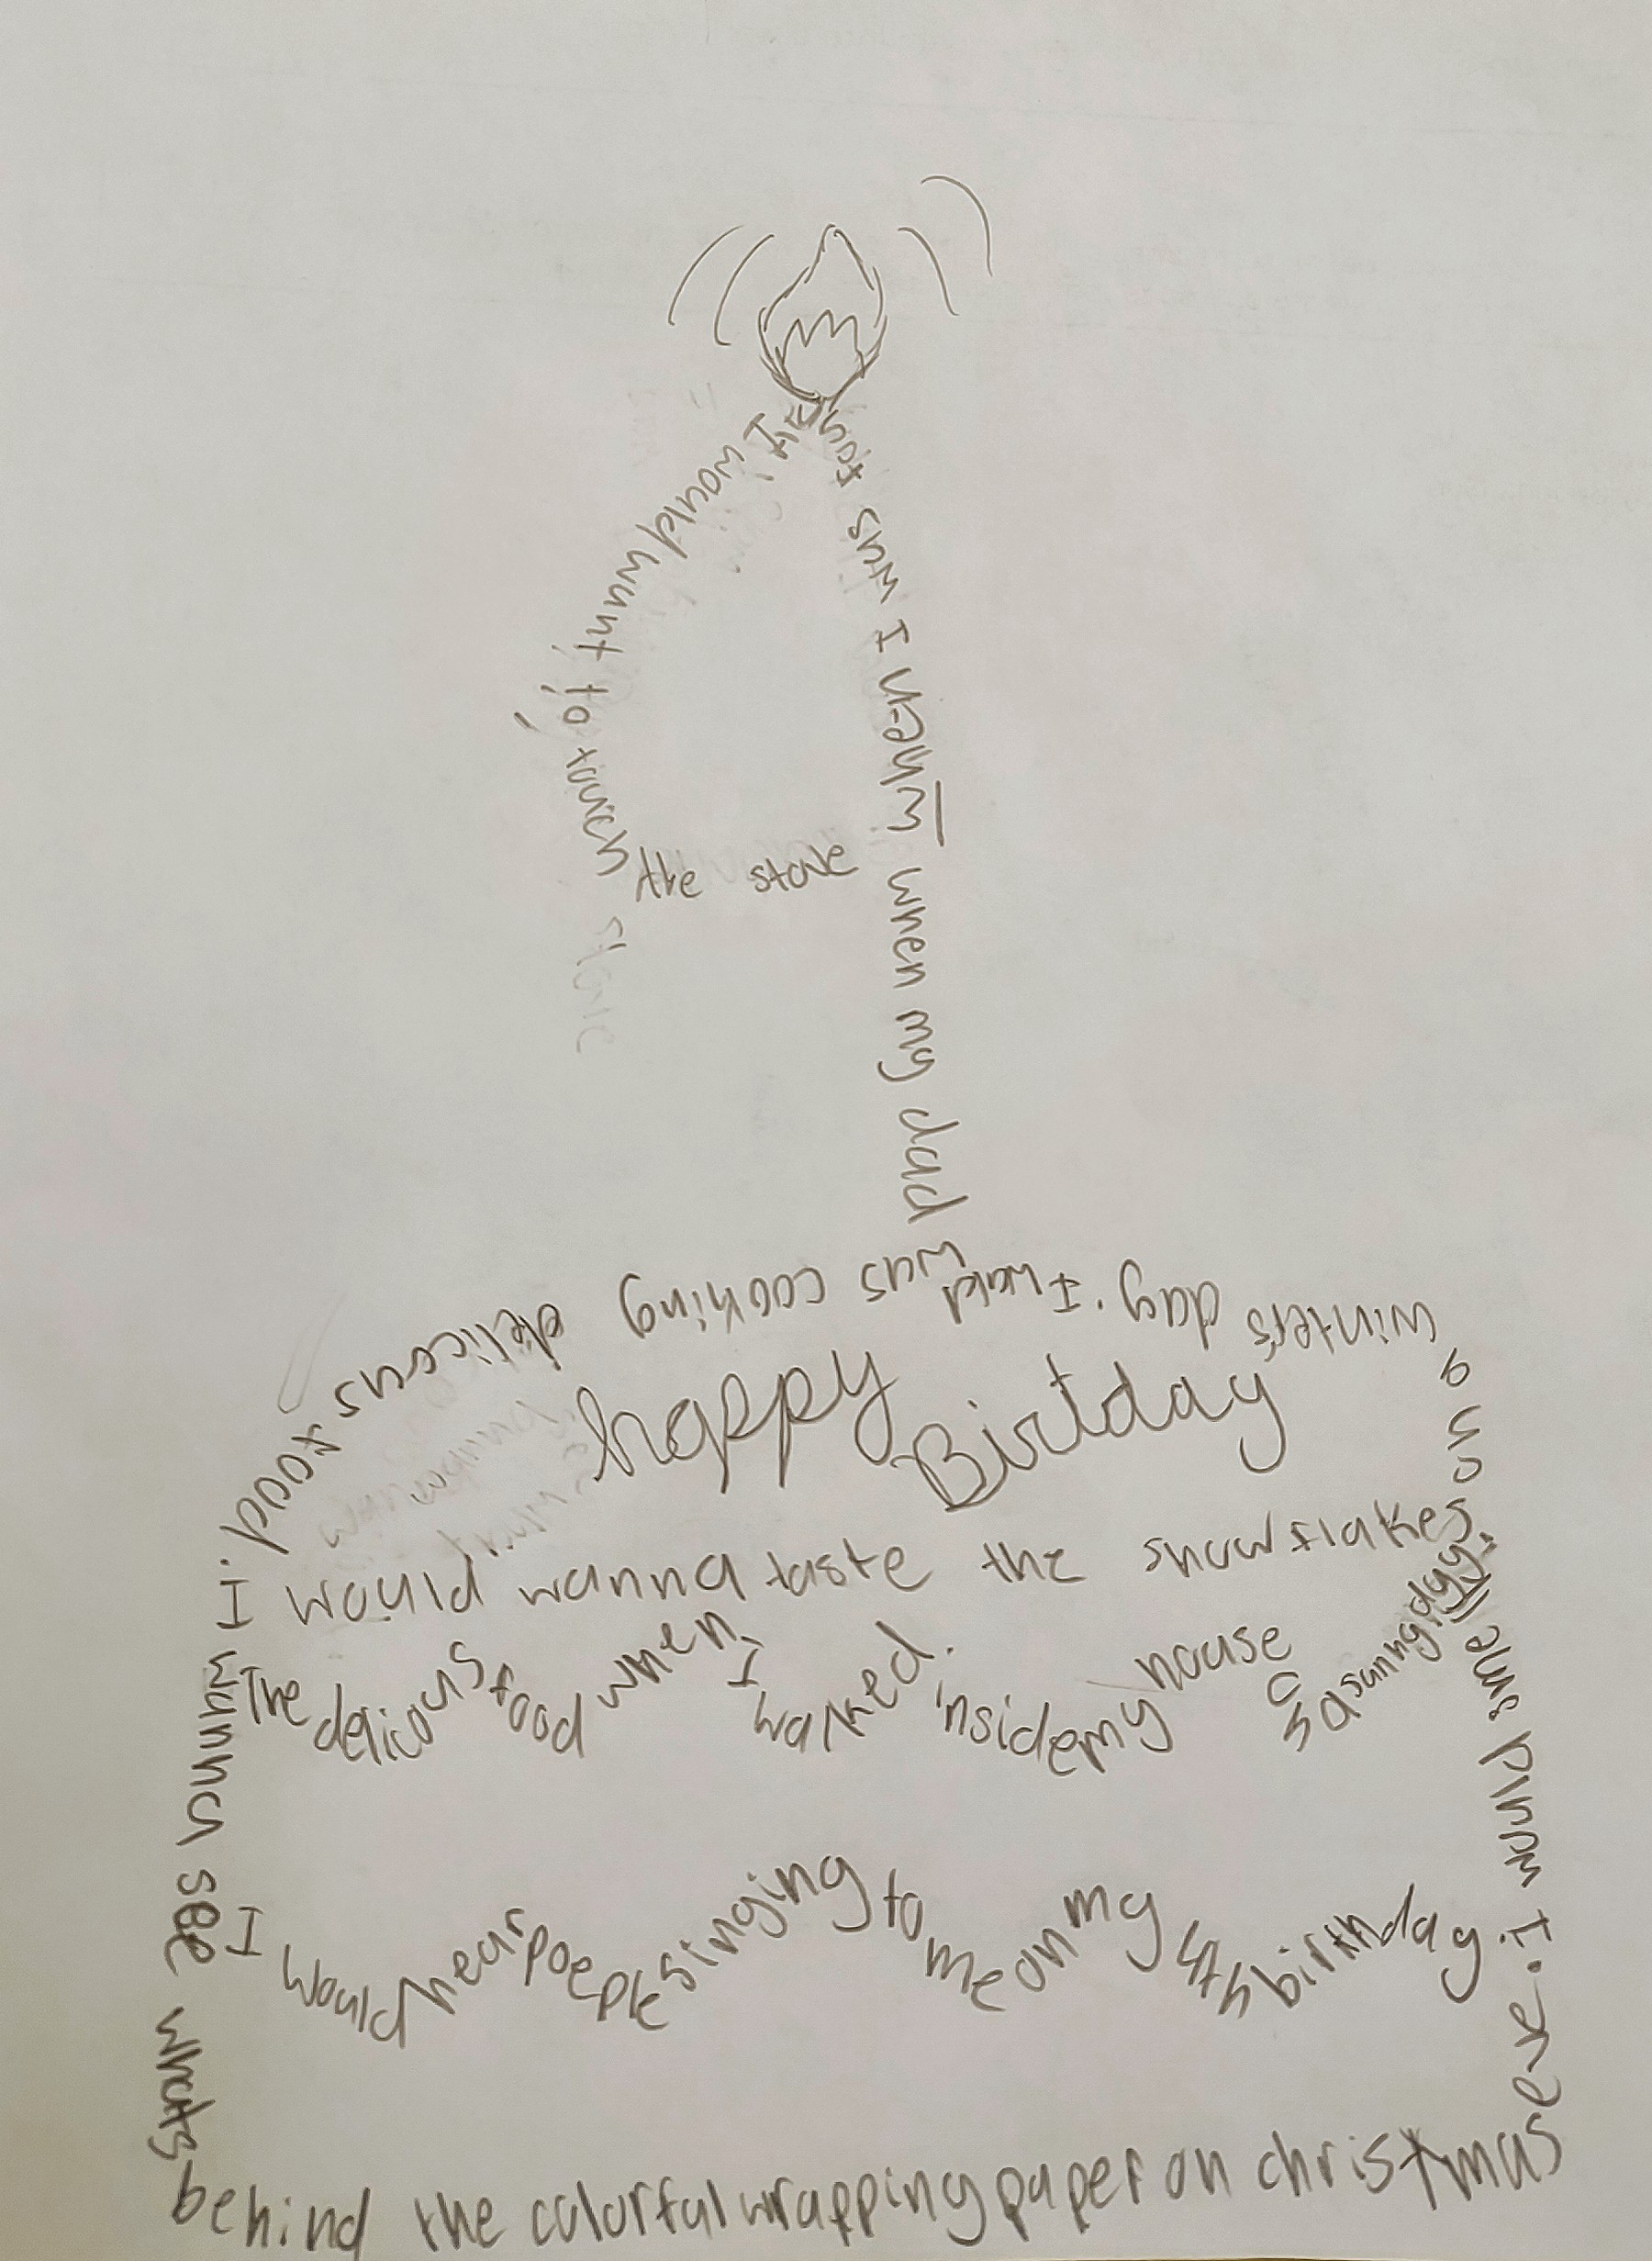 When I was four
I would want to touch
the stove
when my dad
was cooking deliceous food.
I wanna see whats
behind the colorful wrapping paper on christmas
eve.
I would smell
The delicious food when I walked. inside my house on a sunny day.
I would wanna taste the snowflakes.
on a
winters day.
I would
hear poeple singing to me on my 4th birthday.
happy
Birtday